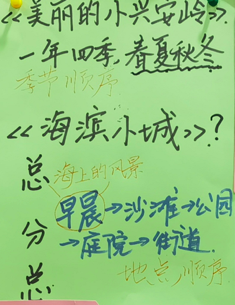 《美丽的小兴安岭》
一年四季,春夏秋冬
季节顺序
《海滨小城》?
总
海上的风景
早晨→沙滩→公园
分
→庭院→街道
地点顺序
总